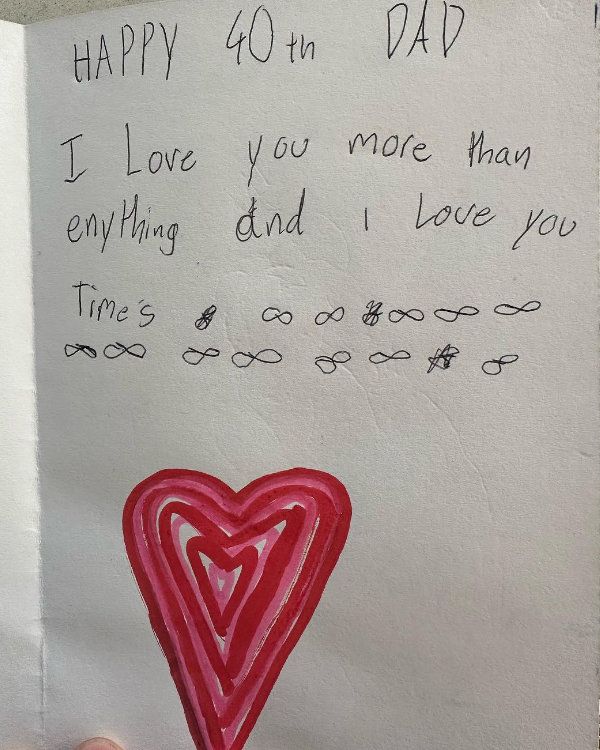 HAPPY 40th DAD
I Love you more than
enything and i Love you
Time's ∞ ∞ ∞ ∞ ∞
∞ ∞ ∞ ∞ ∞ ∞ ∞